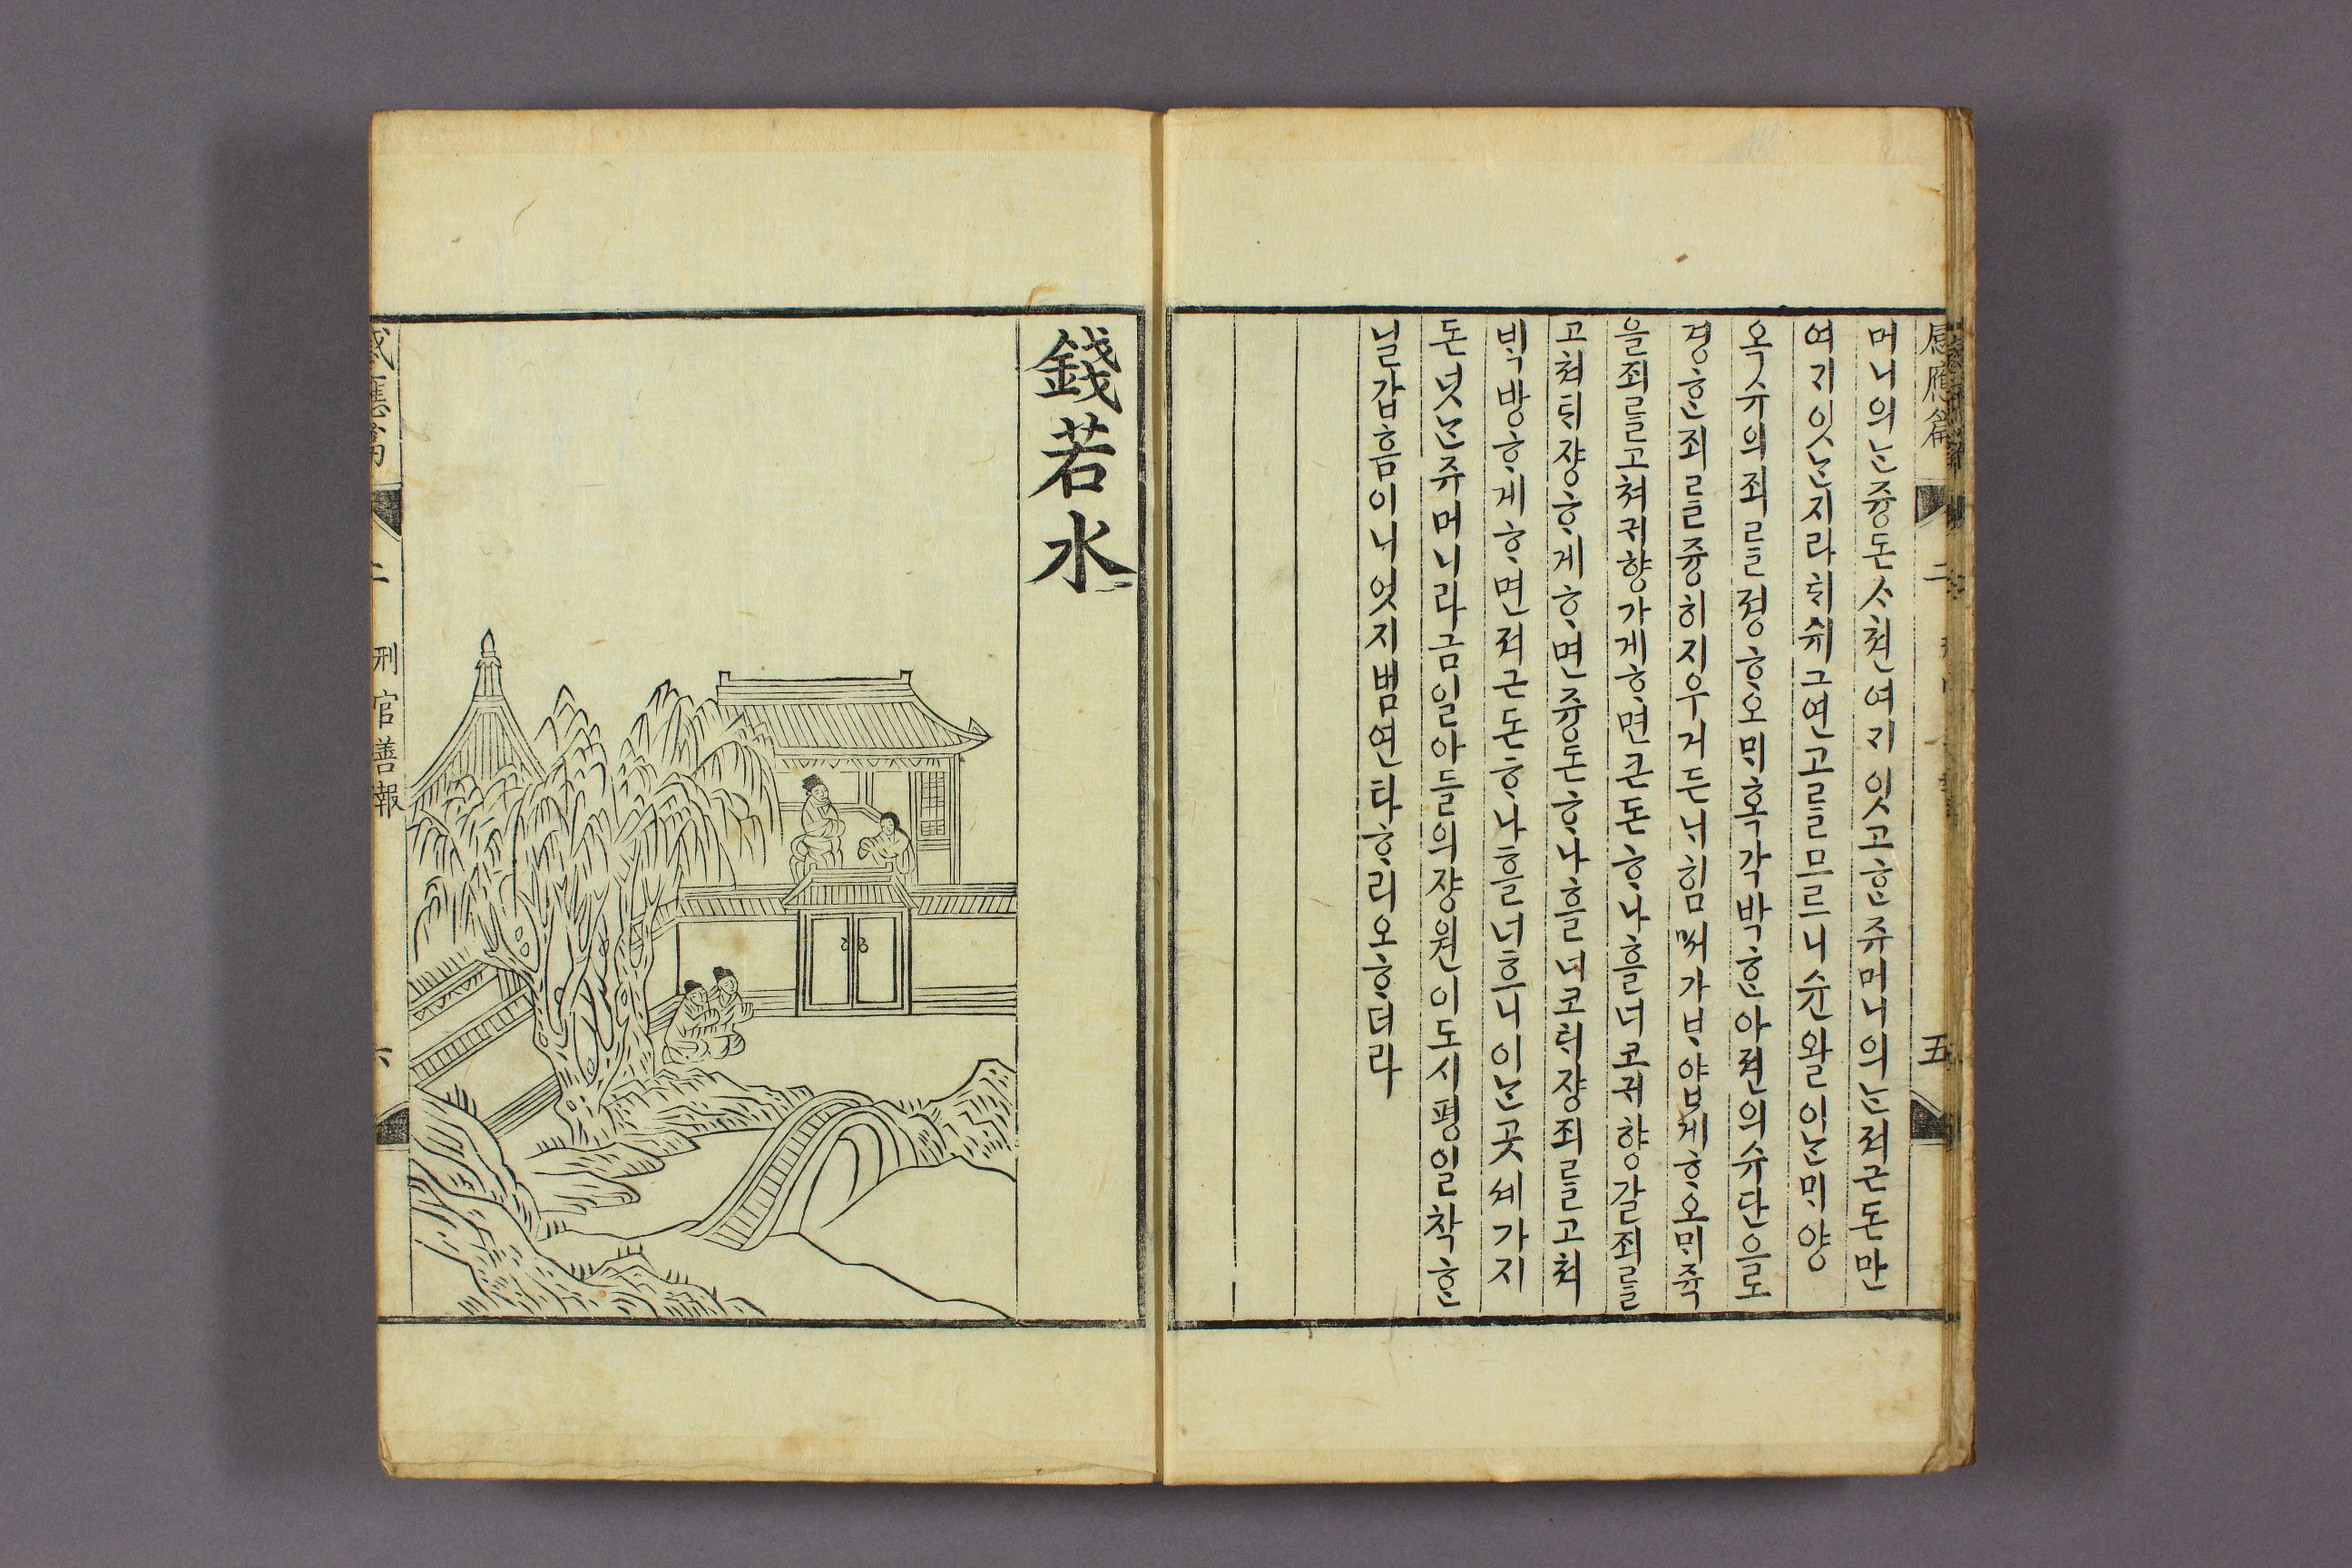 感應篇 二 五
머니의ᄂᆞᆫ즁돈ᄉᆞ쳔여ᄀᆡ잇고ᄒᆞᆫ쥬머니의ᄂᆞᆫ젹근돈만
여ᄀᆡ잇ᄂᆞᆫ지라ᄎᆔ쉐그연고를므르니슌왈이ᄂᆞᆫᄆᆡ양
옥슈의죄를졍ᄒᆞ오ᄆᆡ혹각박ᄒᆞᆫ아젼의슈단으로
경ᄒᆞᆫ죄를즁히지우거든ᄂᆡ힘써가ᄇᆡ얍게ᄒᆞ오ᄆᆡ쥭
을죄를고쳐귀향가게ᄒᆞ면큰돈ᄒᆞ나흘너코귀향갈죄를
고쳐퇴쟝ᄒᆞ게ᄒᆞ면즁돈ᄒᆞ나흘너코퇴쟝죄를고쳐
ᄇᆡᆨ방ᄒᆞ게ᄒᆞ면젹근돈ᄒᆞ나흘너흐니이ᄂᆞᆫ곳세가지
돈넛ᄂᆞᆫ쥬머니라금일아들의쟝원이도시평일착ᄒᆞᆫ
닐갑흠이니엇지범연타ᄒᆞ리오ᄒᆞ더라
錢若水
感應篇 二 刑官善報 六